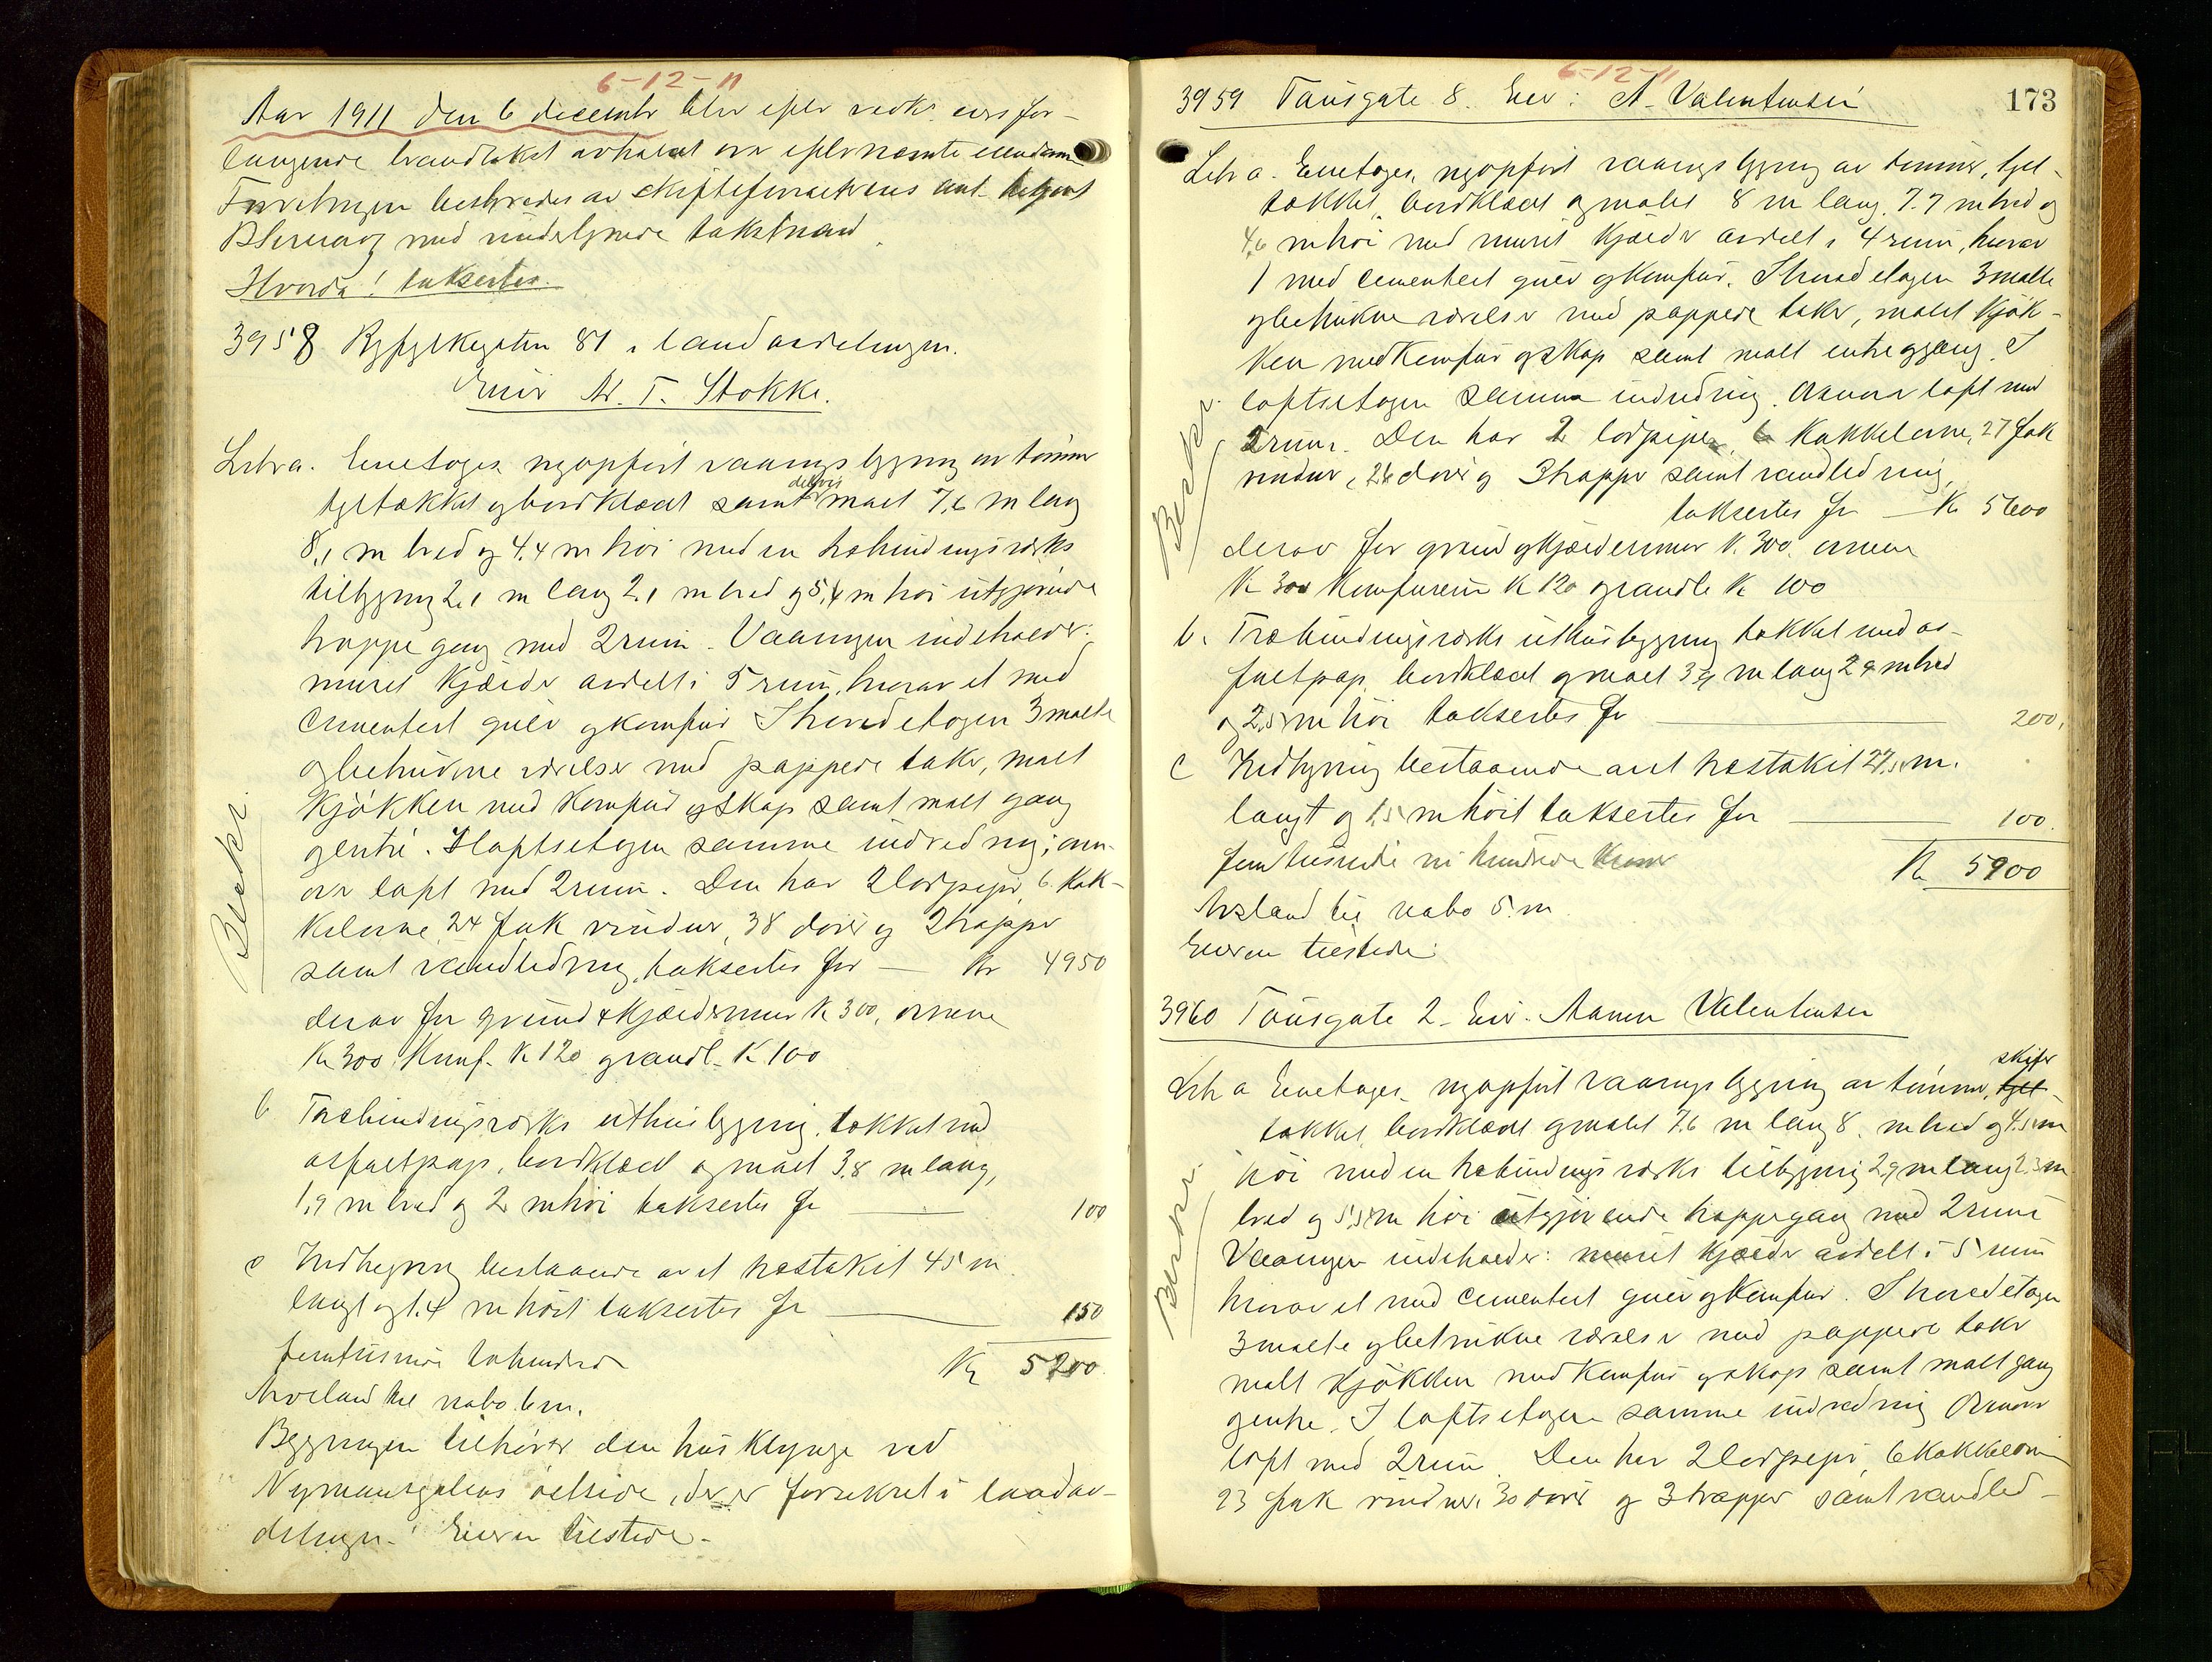 6-12-11
Aar 1911 den 6 decembr blev efter vedk. eiers for-
langende brandtakst avholdt over efternævnte eiendomme
Forretningen bestyredes av skifteforvalterens aut.
med undertegnede takstmænd
Hvorda! taksertes.
3958 Ryfylkegaten 81 i landavdelingen.
Eier M. T. Stokke.
Litr a. Enetages nyopført vaaningsbygning av tømmer
teltækket og bordklædt samt delvis malt 7,6 m lang
8,1 m bred og 4,4 m høi med en træbindingsverks
tilbygning 2,1 m lang 2,1 m bred og 5,4 m høi utgjørende
trappegang med 2 rum. Vaaningen indeholder:
muret kjælder avdelt i 5 rum, hvorav et med
cementert gulv og komfur I hovedetagen 3 malte
og betrukne værelser med pappede taker, malt
kjøkken med komfur og skap samt malt gang
og entré. I loftsetagen samme indredning; ovn-
over loft med 2 rum. Den har 2 lodpiper, 6 kak-
kelovne, 24 fak vinduer, 38 dører og 2 trapper
samt vandledning, taksertes for — Kr 4950
derav for grund & kjældermur K 300, ovnene
Kr 300 Komf. K 120 og vandl. K 100
b Træbindingsverks uthusbygning, tækket med
asfaltpap, bordklædt og malt 3,8 m lang,
1,9 m bred og 2 m høi taksertes for — 100
c Indhegning bestaaende av et træstakit 45 m
langt og 1,4 m høit taksertes for — 150
femtusinde tohundrede Kr 5200
Avstand til nabo 6 m.
Bygningen tilhører den husklynge ved
Nymansgatens østside, der er forsikret i landav-
delingen. Eieren tilstede.
Beskr.
6-12-11
173
3959 Tausgate 8. Eier: A. Valentinsen
Litr a. Enetages, nyopført vaaningsbygning av tømmer, tel-
tækket, bordklædt og malet 8 m lang, 7.7 m bred og
4,6 m høi med muret kjælder avdelt i 4 rum, hvorav
1 med cementert gulv og komfur. I hovedetagen 3 malte
og betrukne værelser med pappede taker, malt kjøk-
ken med komfur og skap samt malt entre og gang. I
loftsetagen samme indredning. Ovenover loft med
2 rum. Den har 2 lodpiper, 6 kakkelovne, 27 fak
vinduer, 26 dører og 3 trapper samt vandledning,
taksertes for — Kr 5600
derav for grund og kjældermur K. 300. ovnene
K 300 komfurene K 120 og vandle K 100
b. Træbindingsverks uthusbygning tækket med as-
faltpap, bordklædt og malt m lang 2,9 m bred
og 2,5 m høi taksertes for — 200,
c Indhegning bestaaende av et træstakit 27,5 m.
langt og 1,5 m høit taksertes for — 100.
femtusinde ni hundrede kroner Kr 5900
Avstand til nabo 5. m
Eieren tilstede.
Beskr.
3960 Tausgate 2. Eier. Aanen Valentinsen
Litr a Enetages, nyopført vaaningsbygning av tømmer, skifer
tækket, bordklædt og malet 7,6 m lang 8. m bred og 4,5 m
høi med en træbindingsverks tilbygning 2,9 m lang 2.3 m
bred og 5,5 m høi utgjørende trappegang med 2 rum
Vaaningen indeholder: muret kjælder avdelt i 5 rum
hvorav et med cementert gulv og komfur. I hovedetagen
3 malte og betrukne værelser med pappede taker
malt kjøkken med komfur og skap samt malt gang
og entre. I loftsetagen samme indredning Ovenover
loft med 2 rum. Den har 2 lodpiper, 6 kakkelovne
23 fak vinduer, 30 dører og 3 trapper samt vandled-
Beskr.